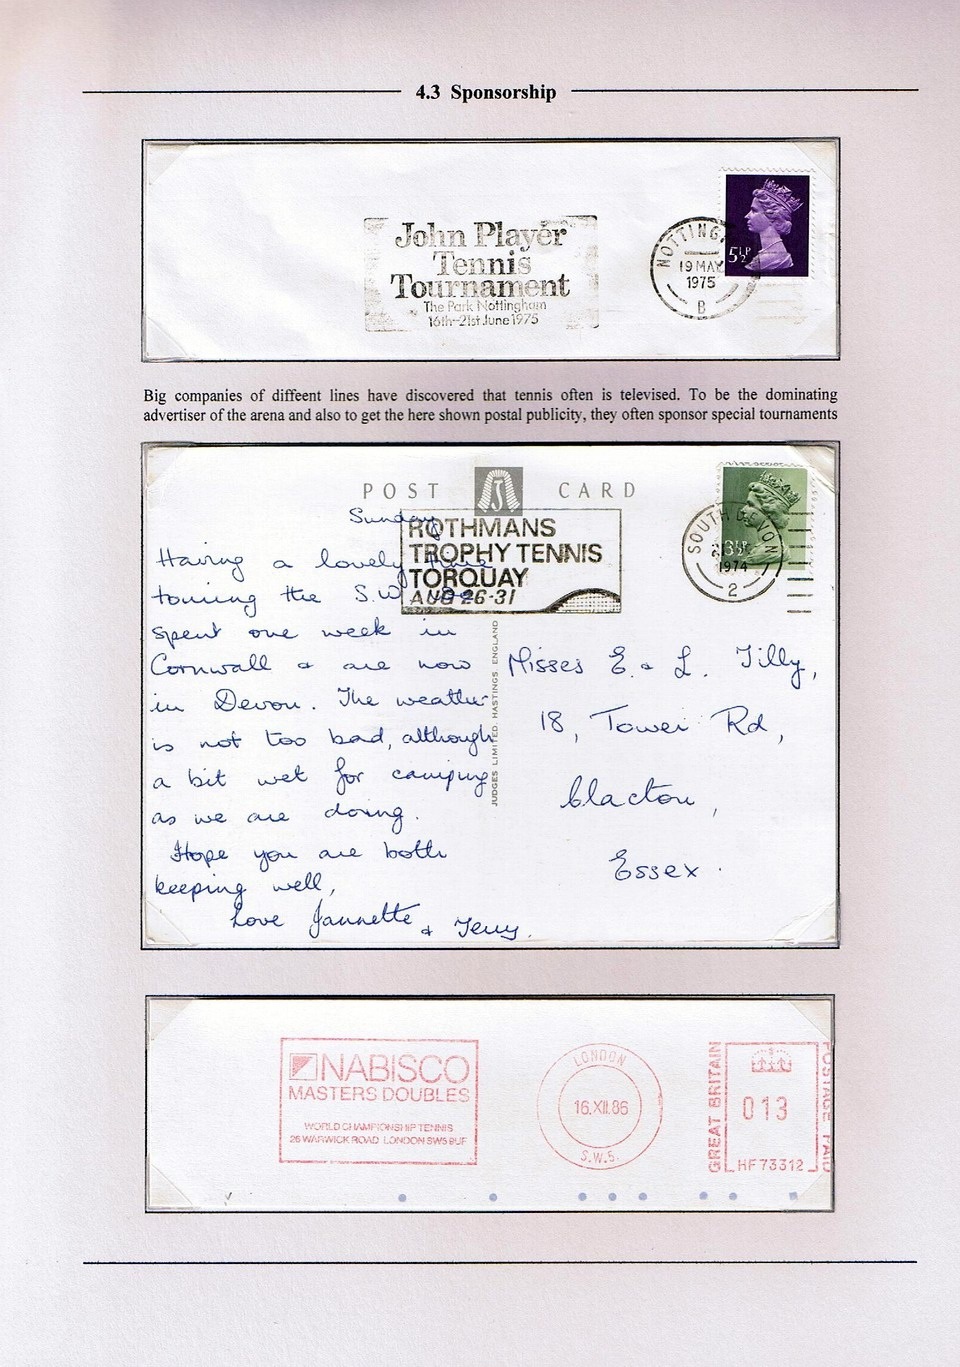 4.3 Sponsorship
John Player
Tennis
Tournament
The Park Nottingham
16th–21st June 1975
NOTTING
19 MAY
1975
B
5½P
Big companies of diffeent lines have discovered that tennis often is televised. To be the dominating
advertiser of the arena and also to get the here shown postal publicity, they often sponsor special tournaments
POST CARD
ROTHMANS
TROPHY TENNIS
TORQUAY
AUG 26-31
SOUTH DEVON
1974
2
3½P
Sunday
Having a lovely time
touring the S.W.
spent one week in
Cornwall & are now
in Devon. The weather
is not too bad, although
a bit wet for camping
as we are doing.
Hope you are both
keeping well,
Love Jannette & Terry.
JUDGES LIMITED, HASTINGS, ENGLAND
Misses E. & L. Tilly,
18, Tower Rd,
Clacton,
Essex.
NABISCO
MASTERS DOUBLES
WORLD CHAMPIONSHIP TENNIS
26 WARWICK ROAD LONDON SW5 9UF
LONDON
16.XII.86
S.W.5.
GREAT BRITAIN
013
HF 73312
POSTAGE PAID